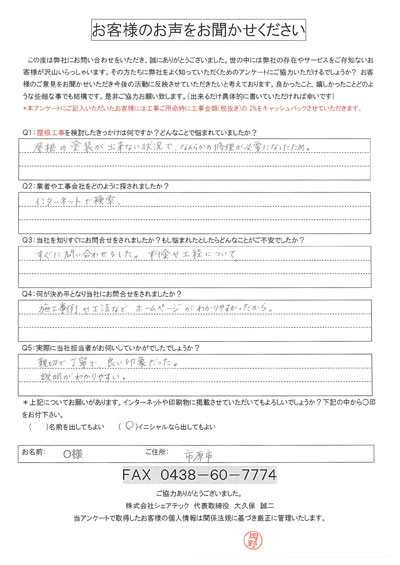 お客様のお声をお聞かせください
この度は弊社にお問い合わせをいただき、誠にありがとうございました。世の中には弊社の存在やサービスをご存知ないお
客様が沢山いらっしゃいます。その方たちに弊社をよく知っていただくためのアンケートにご協力いただけるでしょうか？ お客
様のご意見をお聞かせいただき今後の活動に反映させていただきたいと考えております。良かったこと、嬉しかったことどのよ
うな些細な事でも結構です。是非ご協力お願い致します。（出来るだけ具体的に書いていただければ幸いです）
*本アンケートにご記入いただいたお客様には工事ご用命時に工事金額(税抜き)の0.2%をキャッシュバックさせていただきます。
Q1:屋根工事を検討したきっかけは何ですか？どんなことで悩まれていましたか？
屋根の塗装が出来ない状況で、なんらかの修理が必要になったため。
Q2:業者や工事会社をどのように探されましたか？
インターネットで検索。
Q3:当社を知りすぐにお問合せをされましたか？もし悩まれたとしたらどんなことがご不安でしたか？
すぐに問い合わせをした。料金や工程について。
Q4:何が決め手となり当社にお問合せをされましたか？
施工事例や工法など ホームページがわかりやすかったから。
Q5:実際に当社担当者がお伺いしていかがでしたでしょうか？
親切で丁寧で良い印象だった。
説明がわかりやすい。
*上記についてお願いがあります。インターネットや印刷物に掲載させていただいてもよろしいでしょうか？下記の中から〇印
をお付下さい。
(　)名前を出してもよい　(〇)イニシャルなら出してもよい
お名前: O様 ご住所: 市原市
FAX 0438-60-7774
ご協力ありがとうございました。
株式会社シェアテック 代表取締役 大久保 誠二
当アンケートで取得したお客様の個人情報は関係法規に基づき厳正に管理いたします。
岡野